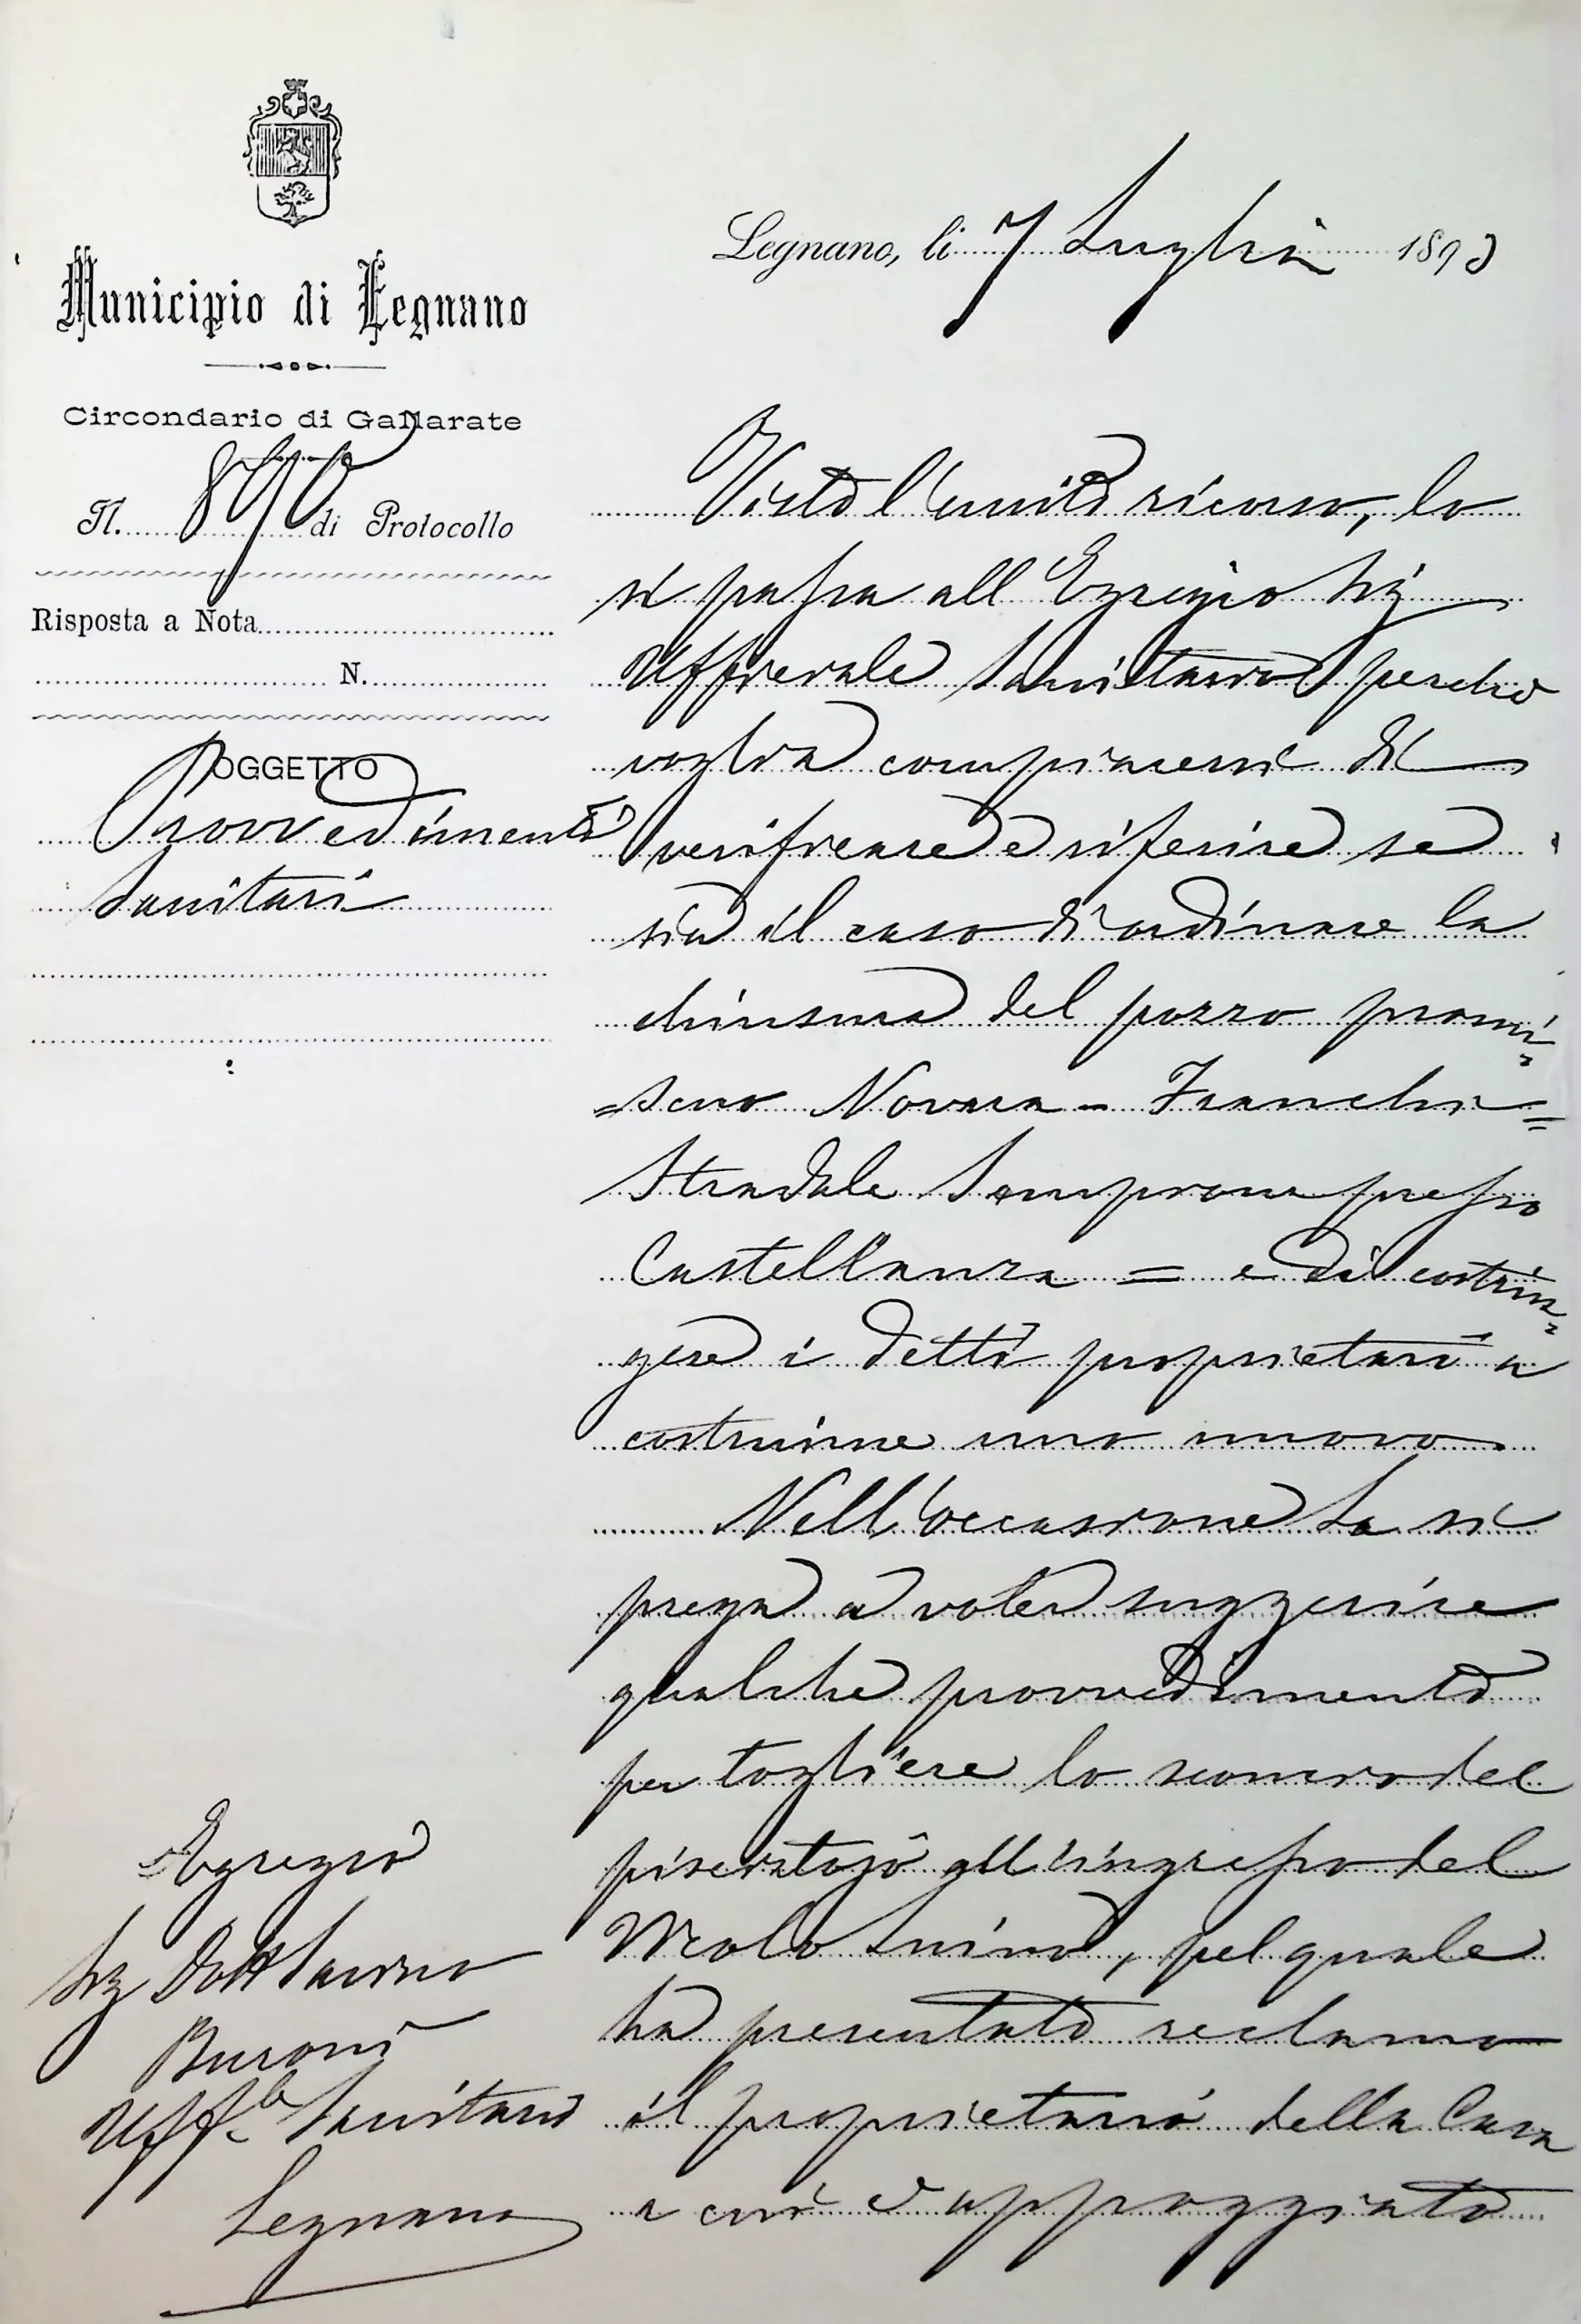 Municipio di Legnano
Circondario di Gallarate
N. 890 di Protocollo
Risposta a Nota
N.
OGGETTO
Provvedimenti
Sanitari
Legnano, li 7 Luglio 1893
Visto l'unito ricorso, lo
si passa all Egregio Sig
Ufficiale Sanitario perchè
voglia compiacersi di
verificare e riferire se
sia il caso di ordinare la
chiusura del pozzo promi=
=scuo Novara - Franchi =
Stradale Sempione presso
Castellanza = e di costrin=
gere i detti proprietari a
costruirne uno nuovo.
Nell'occasione La si
prega a voler suggerire
qualche provvedimento
per togliere lo sconcio del
pisciatojo all'ingresso del
Vicolo, pel quale
ha presentato reclamo
il proprietario della Casa
a cui è appoggiato
Egregio
Sig Dott
Buroni
Uff.le Sanitario
Legnano